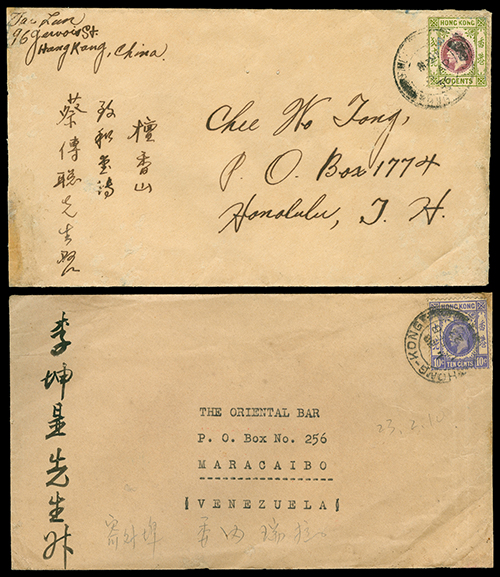 Tao Lum
96 Jervois St.
Hong Kong, China.
HONG KONG
CENTS
檀香山
致和堂
蔡傳聰先生
Chee Wo Tong,
P. O. Box 1774
Honolulu, T. H.
HONG KONG
10c TEN CENTS 10c
李坤星先生
THE ORIENTAL BAR
P. O. Box No. 256
MARACAIBO
VENEZUELA
寄外埠 委內瑞拉